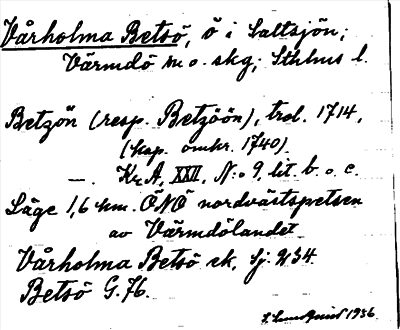 Vårholma Betsö, ö i Saltsjön;
Värmdö sn o. skg; Sthlms l.
Betzön (resp. Betzöön), trol. 1714,
(kop. omkr. 1740).
—. Kr A, XXII, N:o 9, lit. b. o. c.
Läge 1,6 km. ÖNÖ nordvästspetsen
av Värmdölandet.
Vårholma Betsö sk, Sj. 234.
Betsö G. 76.
1936